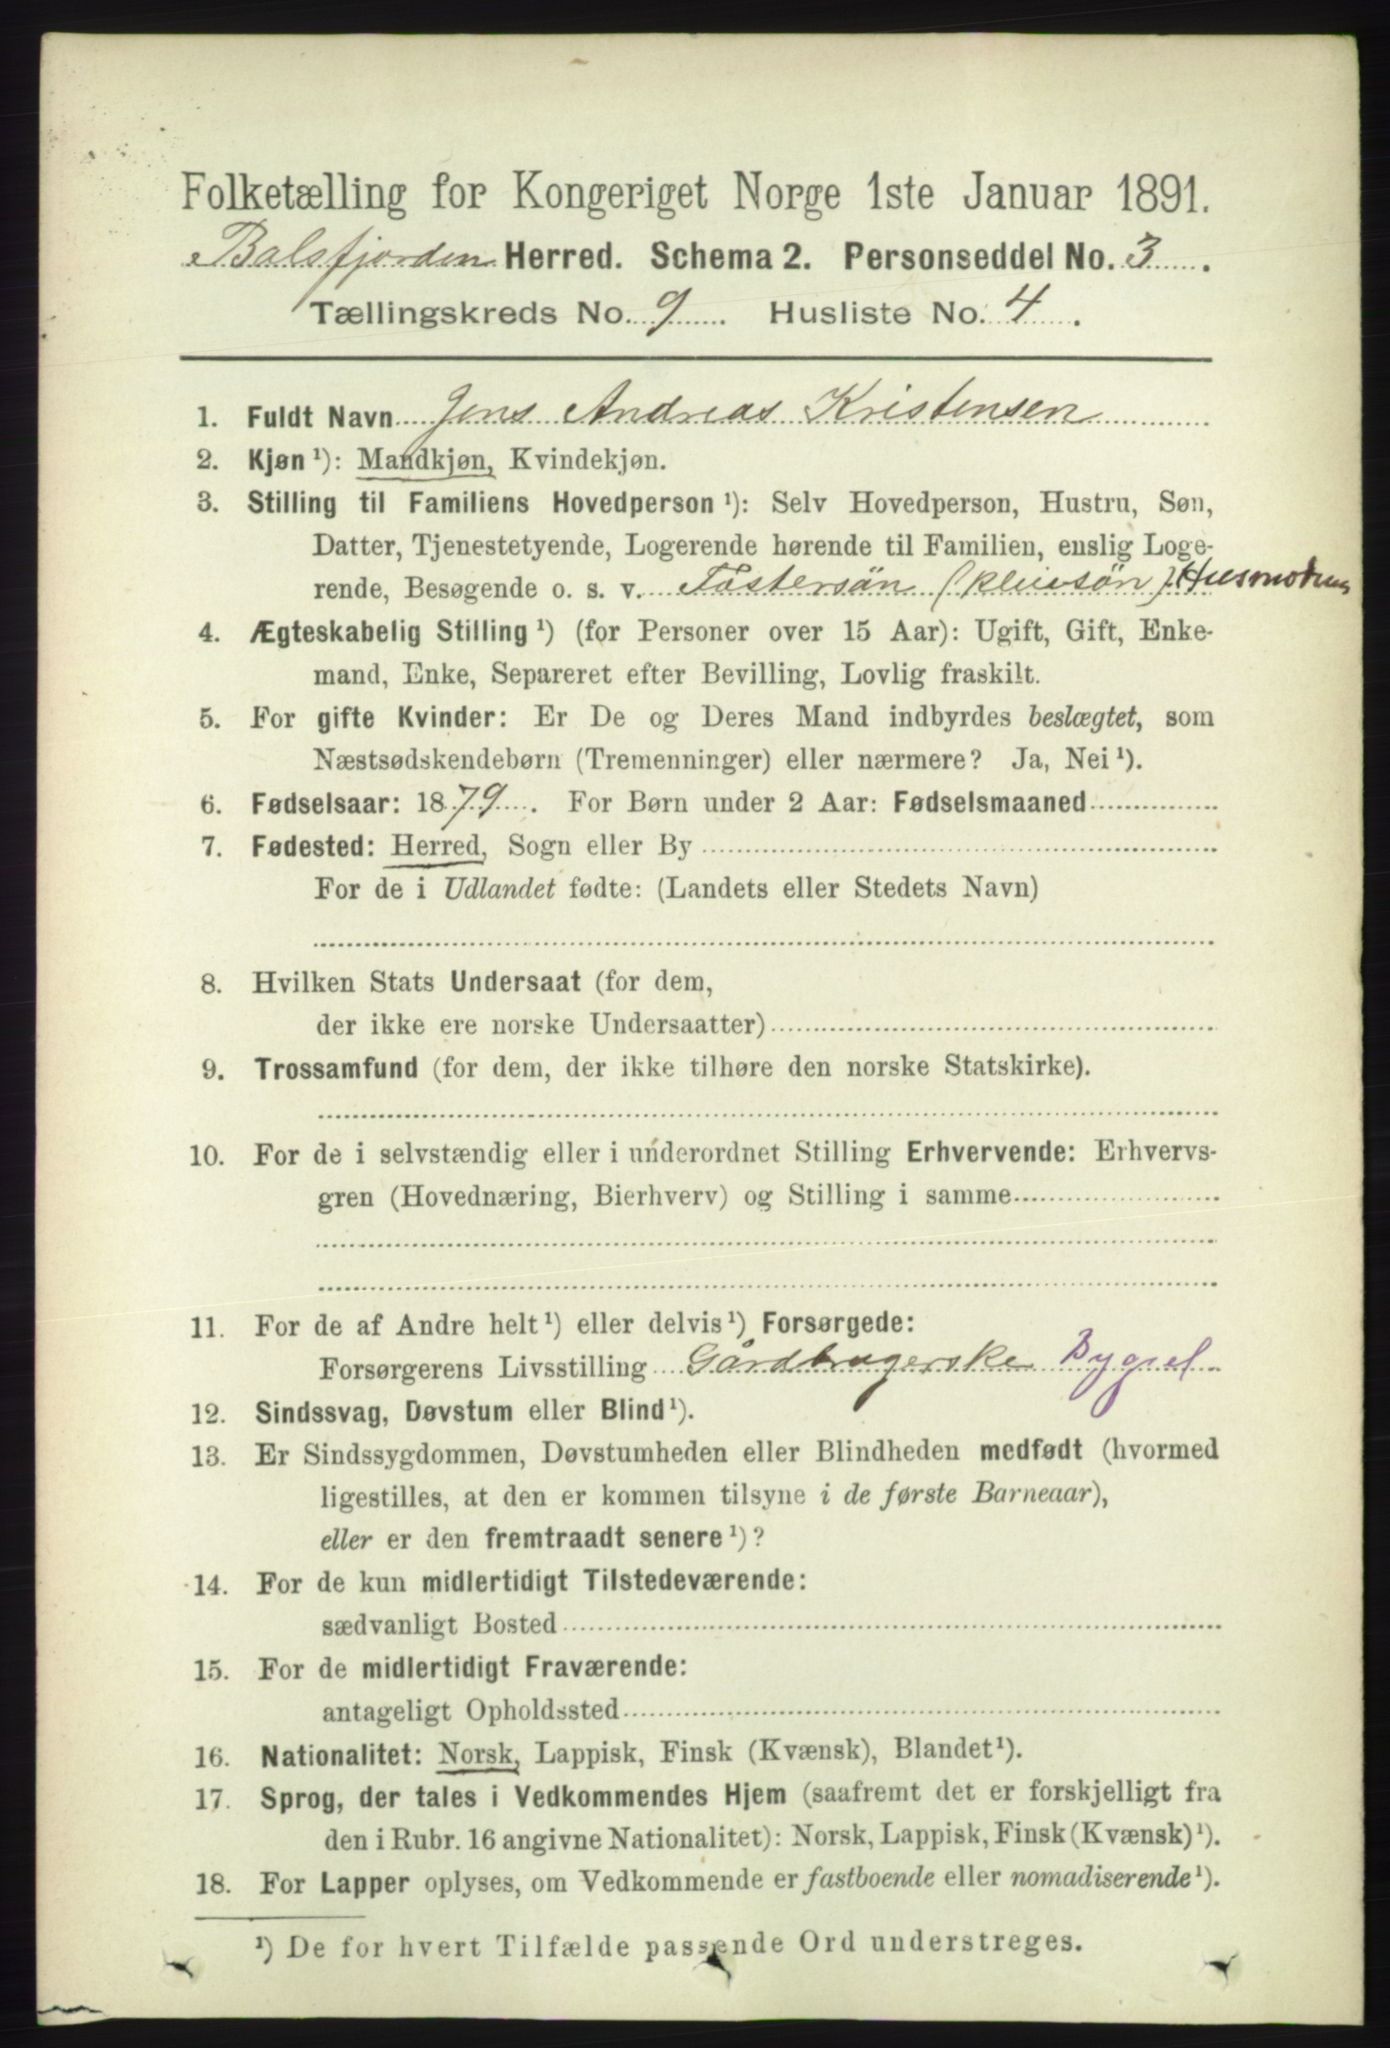 Folketælling for Kongeriget Norge 1ste Januar 1891.
Balsfjorden Herred. Schema 2. Personseddel No. 3.
Tællingskreds No. 9. Husliste No. 4.
1. Fuldt Navn Jens Andreas Kristensen
2. Kjøn ¹): Mandkjøn, Kvindekjøn.
3. Stilling til Familiens Hovedperson ¹): Selv Hovedperson, Hustru, Søn,
Datter, Tjenestetyende, Logerende hørende til Familien, enslig Loge-
rende, Besøgende o. s. v. Fostersøn
4. Ægteskabelig Stilling ¹) (for Personer over 15 Aar): Ugift, Gift, Enke-
mand, Enke, Separeret efter Bevilling, Lovlig fraskilt.
5. For gifte Kvinder: Er De og Deres Mand indbyrdes beslægtet, som
Næstsødskendebørn (Tremenninger) eller nærmere? Ja, Nei ¹).
6. Fødselsaar: 1879. For Børn under 2 Aar: Fødselsmaaned
7. Fødested: Herred, Sogn eller By
For de i Udlandet fødte: (Landets eller Stedets Navn)
8. Hvilken Stats Undersaat (for dem,
der ikke ere norske Undersaatter)
9. Trossamfund (for dem, der ikke tilhøre den norske Statskirke).
10. For de i selvstændig eller i underordnet Stilling Erhvervende: Erhvervs-
gren (Hovednæring, Bierhverv) og Stilling i samme
11. For de af Andre helt ¹) eller delvis ¹) Forsørgede:
Forsørgerens Livsstilling Gårdbrugerske Bygsel
12. Sindssvag, Døvstum eller Blind ¹).
13. Er Sindssygdommen, Døvstumheden eller Blindheden medfødt (hvormed
ligestilles, at den er kommen tilsyne i de første Barneaar),
eller er den fremtraadt senere ¹)?
14. For de kun midlertidigt Tilstedeværende:
sædvanligt Bosted
15. For de midlertidigt Fraværende:
antageligt Opholdssted
16. Nationalitet: Norsk, Lappisk, Finsk (Kvænsk), Blandet ¹).
17. Sprog, der tales i Vedkommendes Hjem (saafremt det er forskjelligt fra
den i Rubr. 16 angivne Nationalitet): Norsk, Lappisk, Finsk (Kvænsk) ¹).
18. For Lapper oplyses, om Vedkommende er fastboende eller nomadiserende ¹).
¹) De for hvert Tilfælde passende Ord understreges.